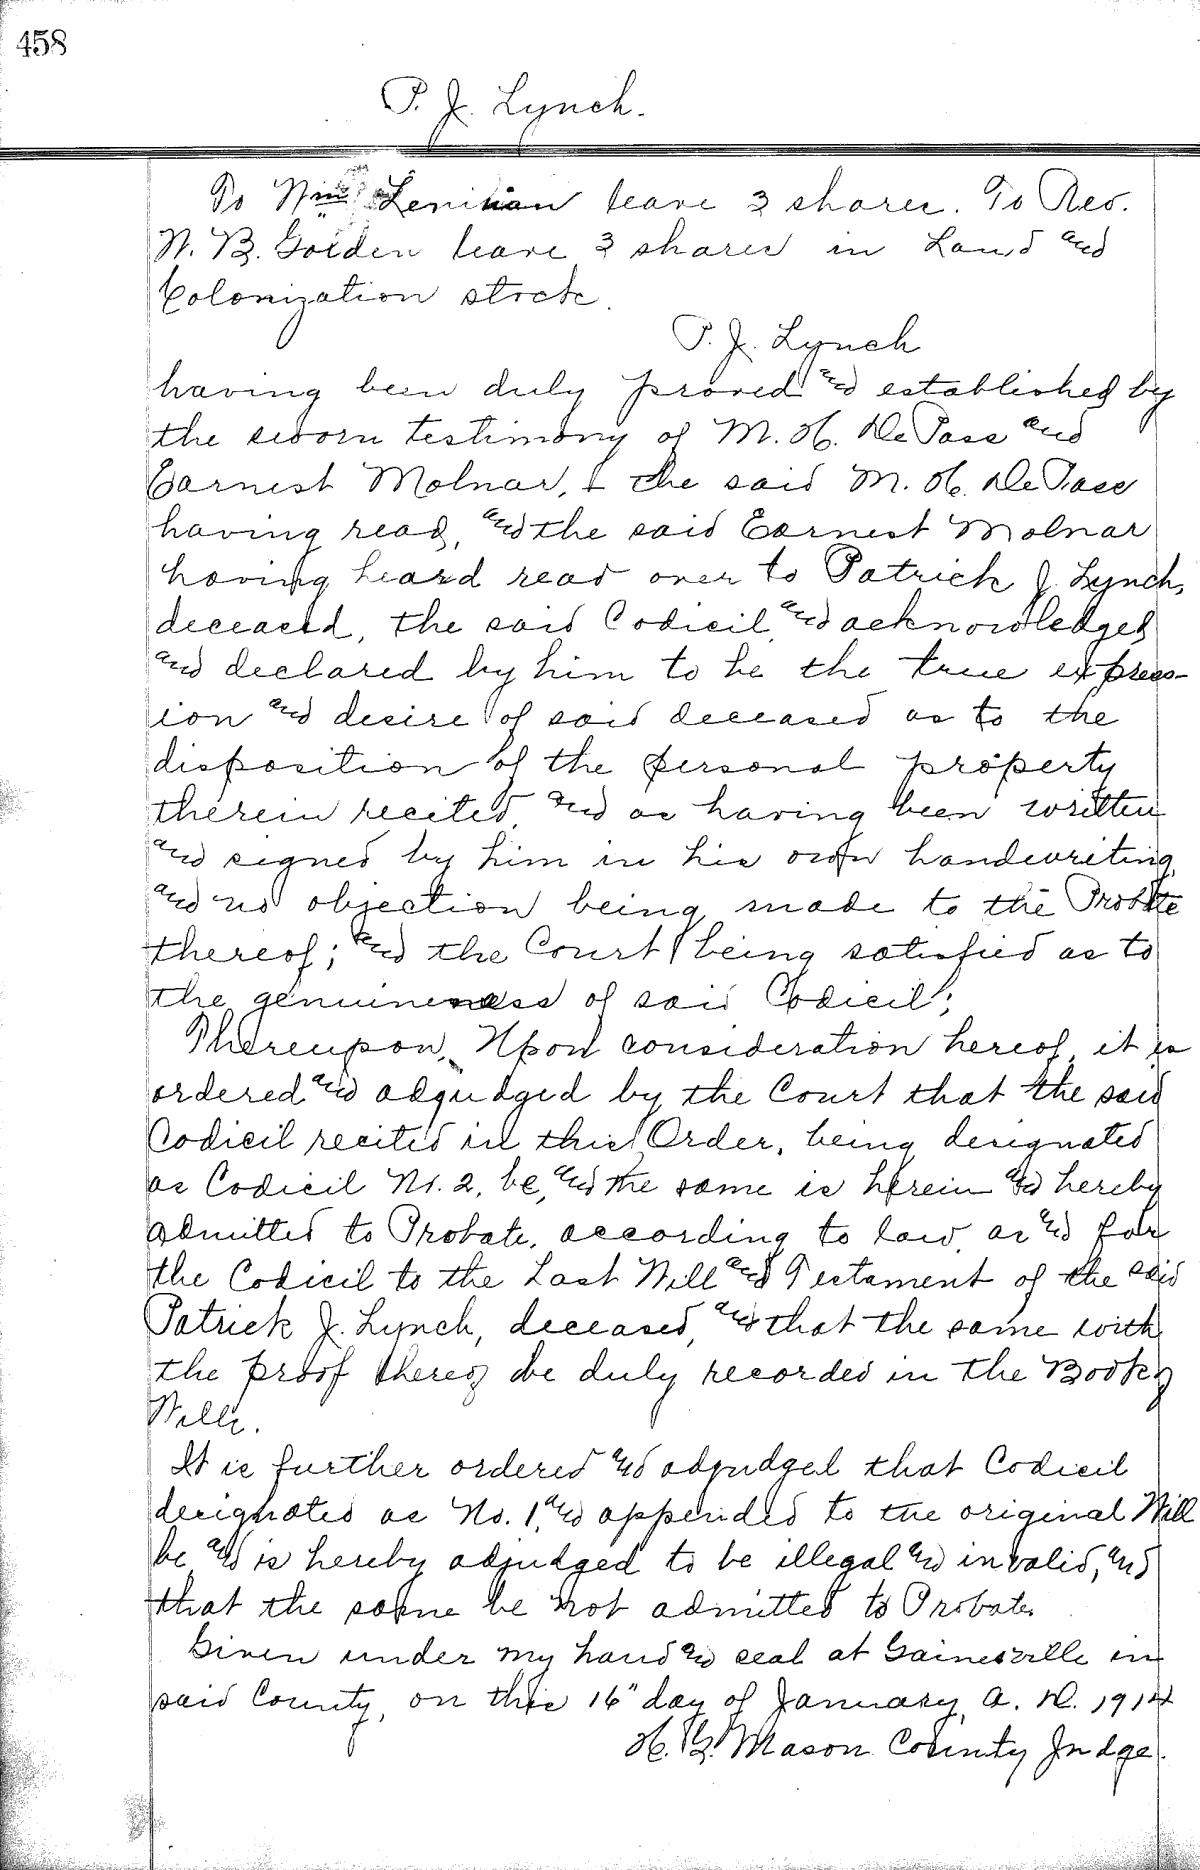 458
P. J. Lynch.
To Wm Lenihan leave 3 shares. To Rev.
W. B. Golden leave 3 shares in Land and
Colonization stock.
P. J. Lynch
having been duly proved and established by
the sworn testimony of M. H. DePass and
Earnest Molnar, + the said M. H. DePass
having read, and the said Earnest Molnar
having heard read over to Patrick J. Lynch,
deceased, the said Codicil, and acknowledged
and declared by him to be the true express-
ion and desire of said deceased as to the
disposition of the personal property
therein recited, and as having been written
and signed by him in his own handwriting,
and no objection being made to the Probate
thereof; and the Court being satisfied as to
the genuineness of said Codicil;
Thereupon, Upon consideration hereof, it is
ordered and adjudged by the Court that the said
Codicil recited in this Order, being designated
as Codicil No. 2, be, and the same is herein and hereby
admitted to Probate, according to law, as and for
the Codicil to the Last Will and Testament of the said
Patrick J. Lynch, deceased, and that the same with
the proof thereof be duly recorded in the Book of
Wills.
It is further ordered and adjudged that Codicil
designated as No. 1, and appended to the original Will
be and is hereby adjudged to be illegal and invalid, and
that the same be not admitted to Probate.
Given under my hand and seal at Gainesville in
said County, on this 16" day of January, A. D. 1914
H. G. Mason County Judge.